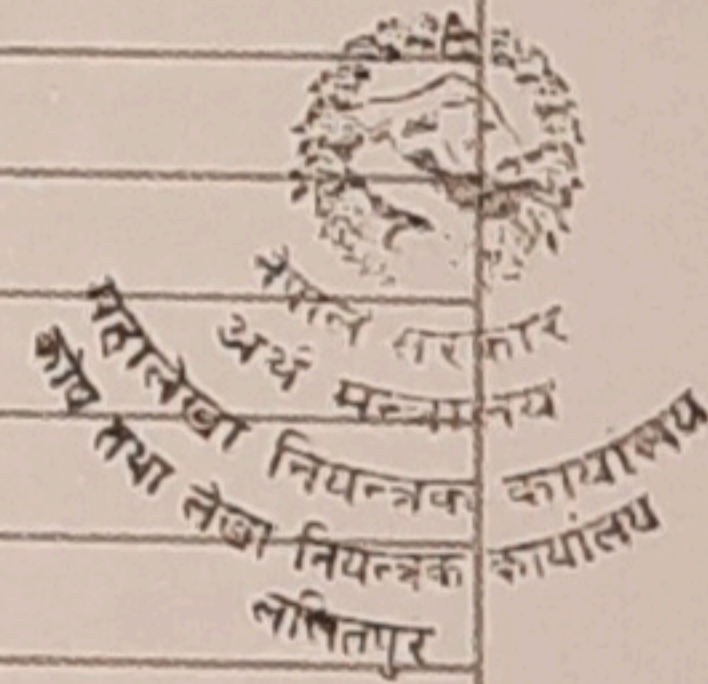 नेपाल सरकार
अर्थ मन्त्रालय
महालेखा नियन्त्रक कार्यालय
कोष तथा लेखा नियन्त्रक कार्यालय
ललितपुर